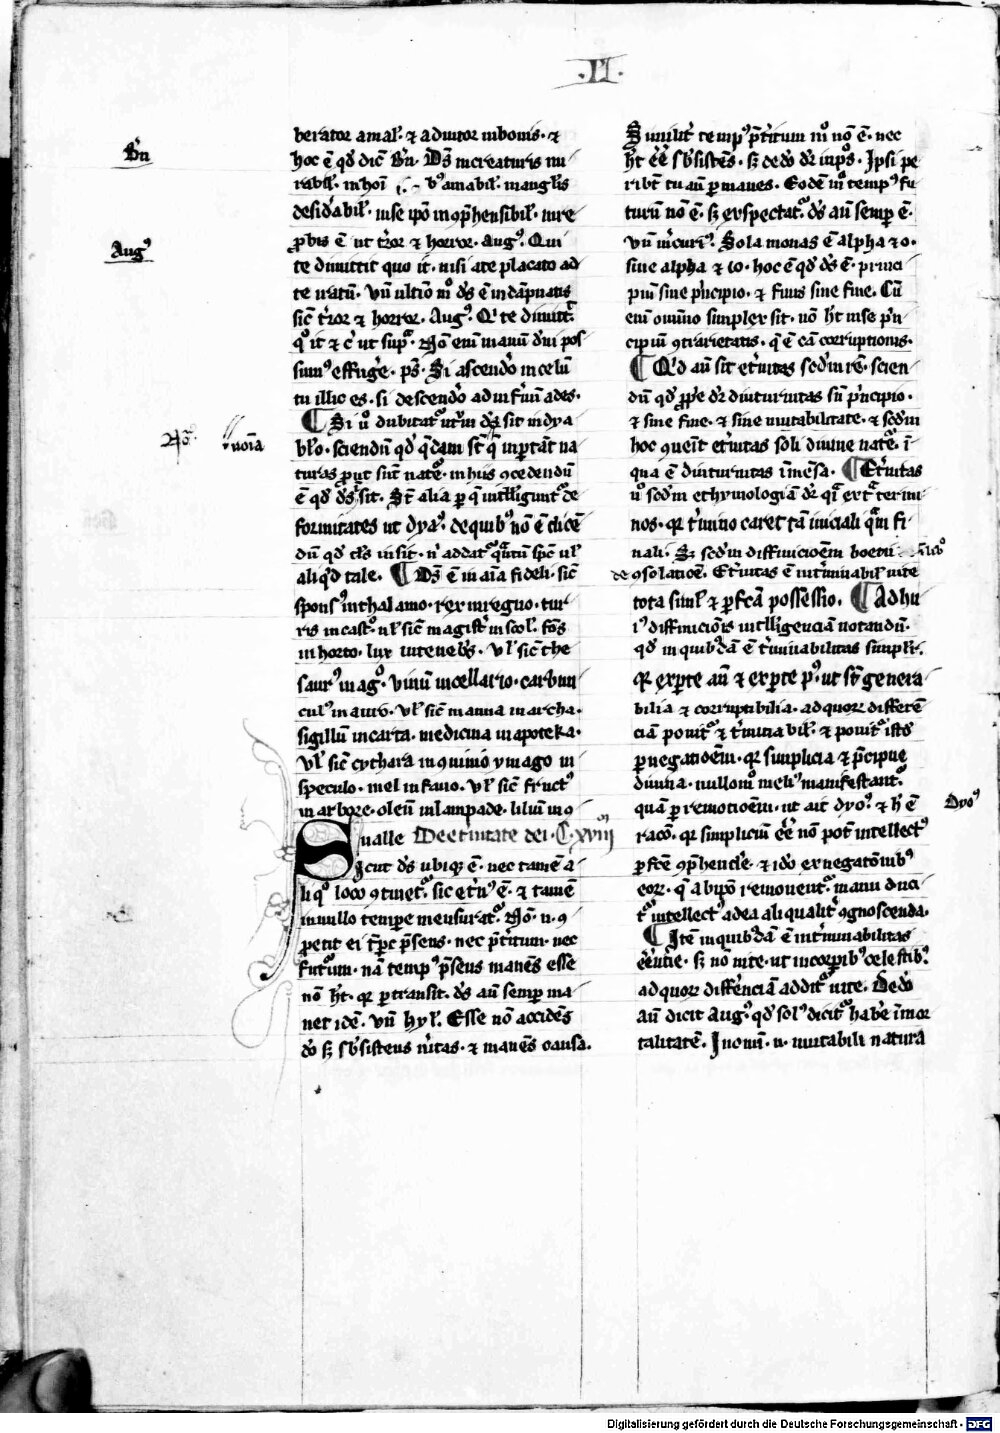 .VI.
Bn̄
Aug᷒
Nō.
noīa
Dyo᷒
berator amal'. ⁊ adiutor inbonis. ⁊
hoc ē qd̕ dic̄ Bn̄. Ds̄ in creaturis mi
rabil'. in hoī v᷒ amabil'. in angl̕is
desid̕abil'. in se ip̄o in ꝯp̄hensibil'. in re
ꝓbis ē ut t̄ror ⁊ horror. Aug᷒. Qui
te dimittit quo it. nisi a te placato ad
te iratū. Vn̄ ultio m̊ ds̄ ē in dāpnatis
sic̄ t̄ror ⁊ horror. Aug᷒. Q̕ te dimitt̕
q̊ it ⁊ c̄ ut sup̄. Nō eni manū dn̄i pos
sum᷒ effug̕e. ps̄. Si ascendo in celū
tu illic es. si descendo ad infnū ades.
¶ Si ů dubitat᷒ ut̄m ds̄ sit in dya
bl̄o. sciendū qd̕ q̄dam st̄ q̄ inportāt na
turas ꝓut sūt nate. in hiis ꝯcedendū
ē qd̕ ds̄ sit. St̄ alia p q̄ intelliguntᷣ de
formitates ut dya᷒. de quib᷒ nō ē dicē
dū qd̕ ds̄ in sit. n̄ addatᷣ q̄tū spē ul̕
aliq̕d tale. ¶ Ds̄ ē in aīa fideli. sic̄
spons᷒ in thalamo. rex in regno. tur
ris in cast̊. ul̕ sic̄ magist̄ in scol'. fōs
in horto. lux in teneb̕s. Vl̕ sic̄ the
saur᷒ in ag̊. vinū in cellario. carbun
cul᷒ in auro. Vl̕ sic̄ manna in archa.
sigillū in carta. medicina in apoteka.
Vl̕ sic̄ cythara in ꝯuiuio ymago in
speculo. mel in fauo. Vl̕ sic̄ fruct᷒
in arbore. oleū in lampade. liliū in ꝯ
ualle De et̄nitate dei. C. xviij
Sicut ds̄ ubiqꝫ ē. nec tamē a
liq̊ loco ꝯtinetᷣ. sic et̄n᷒ ē. ⁊ tamē
in nullo tempe mensuratᷣ. Nō. n. ꝯ
petit ei t̄pc p̄sens. nec p̄t̄itum. nec
futuꝝ. nā temp᷒ p̄sens manēs esse
nō ht̄. qꝛ ptransit. ds̄ aū semp ma
net idē. Vn̄ hyl'. Esse nō accidēs
do sꝫ sb̕sistens v̕itas. ⁊ manēs causa.
Simil̕r temp᷒ p̄t̄itum m̊ nō ē. nec
ht̄ ēē sb̕sistēs. sꝫ de do dr̄ in ps̊. Ipsi pe
ribt̄ tu aū pmanes. Eodē m̊ temp᷒ fu
turū nō ē. sꝫ exspectatᷣ. ds̄ aū semp ē.
Vn̄ m̕curi᷒. Sola monas ē alpha ⁊ o.
siue alpha ⁊ ω. hoc ē qd̕ ds̄ ē. princi
piū sine p̕ncipio. ⁊ finis sine fine. Cū
eni omnino simplex sit. nō ht̄ in se p̕n
cipiū ꝯtrarietatis. q̄ ē cā corruptionis.
¶ Q̕d aū sit et̄nitas scd̕m rē. scien
dū qd̕ ꝓpe dr̄ diuturnitas sn̄ p̕ncipio.
⁊ sine fine. ⁊ sine mutabilitate. ⁊ scd̕m
hoc ꝯuenit et̄nitas soli diuine nat̄e. ī
qua ē diuturnitas īmēsa. ¶ Et̄nitas
ů scd̕m ethymologiā dr̄ q̄i ext̄ termi
nos. qꝛ t̄mino caret tā iniciali q̄m fi
nali. Sꝫ scd̕m diffinicioēm boetii
de ꝯsolatiōe. Et̄nitas ē int̄minabil' uite
tota simul' ⁊ pfc̄a possessio. ¶ Ad hu
i᷒ diffinicōis intelligenciā notandū.
qd̕ in quibdā ē t̄minabilitas simplr̄.
qꝛ ex pte an̄ ⁊ ex pte p᷒. ut st̄ genera
bilia ⁊ corruptibilia. ad quoꝝ differē
ciā ponitᷣ ⁊ t̄minabil'. ⁊ ponitᷣ istd̕
p negatoēm. qꝛ simplicia ⁊ p̄cipue
diuina. nullom̊ meli᷒ manifestantᷣ
quā p remotioēm. ut ait dyo᷒. ⁊ h̄ ē
racō. qꝛ simpliciū ēē nō pot̄ intellect᷒
pfcē ꝯp̄hende. ⁊ ido ex negatōnib᷒
eoꝝ. q̄ ab ip̄o remouentᷣ. manu duci
tᷣ intellect᷒ ad ea aliqualit̄ ꝯgnoscenda.
¶ Itē in quibdā ē int̄minabilitas
ēēntie. sꝫ nō uite. ut in corpib᷒ celestib᷒.
ad quoꝝ diffēnciā additᷣ uite. De do
aū dicit Aug᷒. qd̕ sol᷒ dicitᷣ habe īmor
talitatē. In omi. n. mutabili natura
Digitalisierung gefördert durch die Deutsche Forschungsgemeinschaft - DFG